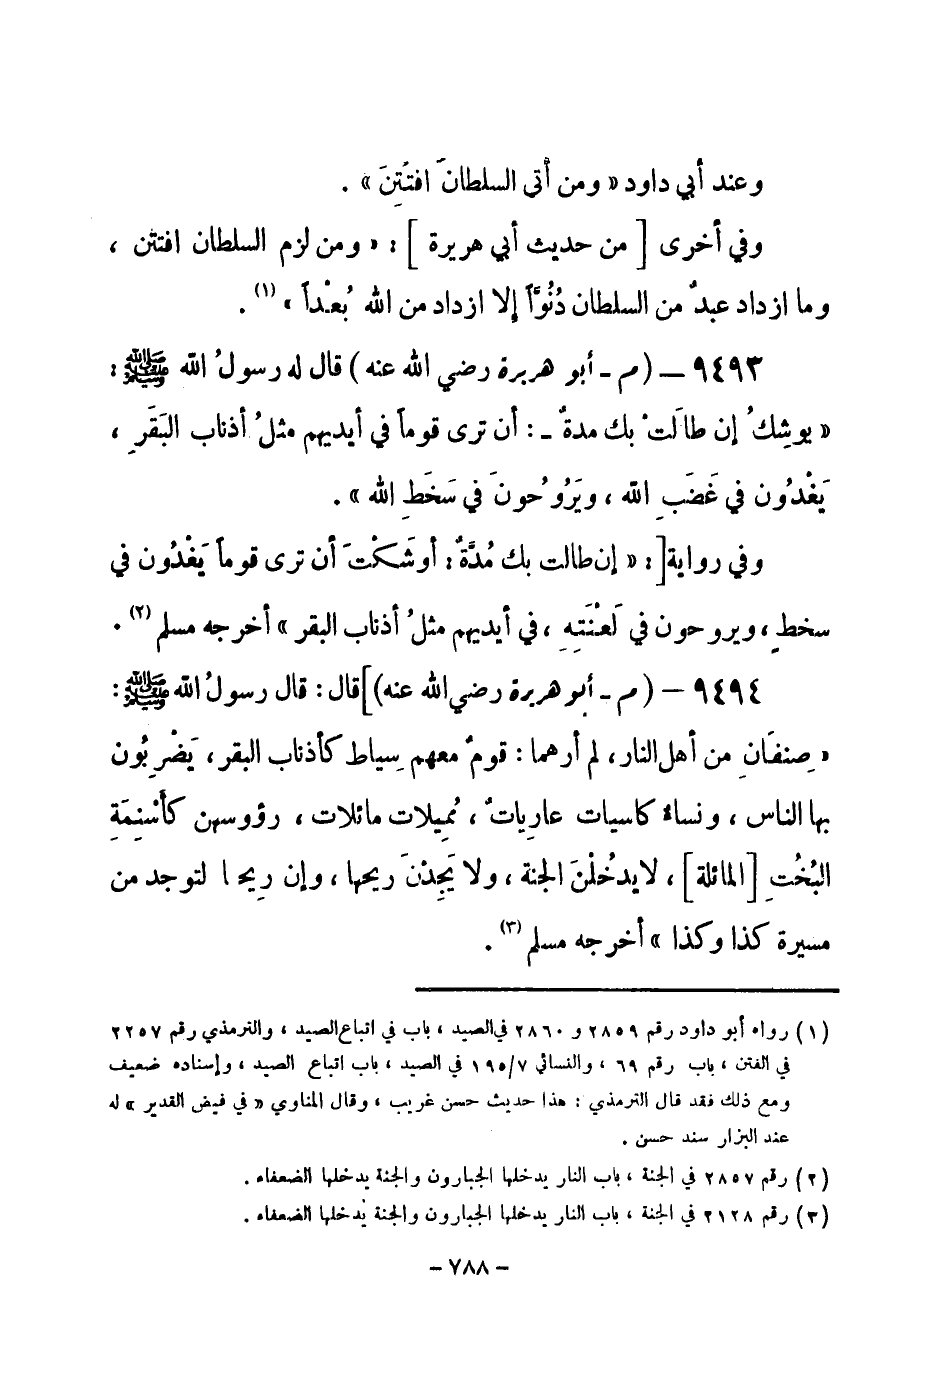 وعند أبي داود « ومن أتى السلطانَ افتَتِنَ » .
وفي أخرى [ من حديث أبي هريرة ] : « ومن لزم السلطان افتتن ،
وما ازداد عبدٌ من السلطان دُنُوّاً إلا ازداد من الله بُعْداً » (١) .
٩٤٩٣ – ( م - أبو هريرة رضي الله عنه ) قال له رسولُ الله ﷺ :
« يوشِكُ إن طالَتْ بك مدةٌ - : أن ترى قوماً في أيديهم مثلُ أذناب البَقَرِ ،
يَغْدُون في غَضَبِ الله ، ويَرُوحُونَ في سَخَطِ الله » .
وفي رواية [ : « إن طالت بك مُدَّةٌ : أوشَكْتَ أن ترى قوماً يَغْدُون في
سخطٍ ، ويروحون في لَعْنَتِهِ ، في أيديهم مثلُ أذناب البقر » أخرجه مسلم (٢) .
٩٤٩٤ – ( م - أبو هريرة رضي الله عنه) ] قال : قال رسولُ الله ﷺ :
« صِنفَانِ من أهل النار ، لم أرهما : قومٌ معهم سِياط كأذناب البقر ، يَضْرِبُون
بها الناس ، ونساءٌ كاسيات عارِياتٌ ، مُمِيلات مائلات ، رؤوسهن كأسْنِمَةِ
البُخْتِ [ المائلة ] ، لا يدخُلْنَ الجنة ، ولا يَجِدْنَ ريحها ، وإن رِيحا لتوجد من
مسيرة كذا وكذا » أخرجه مسلم (٣) .
(١) رواه أبو داود رقم ٢٨٥٩ و ٢٨٦٠ في الصيد ، باب في اتباع الصيد ، والترمذي رقم ٢٢٥٧
في الفتن ، باب رقم ٦٩ ، والنسائي ١٩٥/٧ في الصيد ، باب اتباع الصيد ، وإسناده ضعيف
ومع ذلك فقد قال الترمذي : هذا حديث حسن غريب ، وقال المناوي « في فيض القدير » له
عند البزار سند حسن .
(٢) رقم ٢٨٥٧ في الجنة ، باب النار يدخلها الجبارون والجنة يدخلها الضعفاء .
(٣) رقم ٢١٢٨ في الجنة ، باب النار يدخلها الجبارون والجنة يدخلها الضعفاء .
– ٧٨٨ –